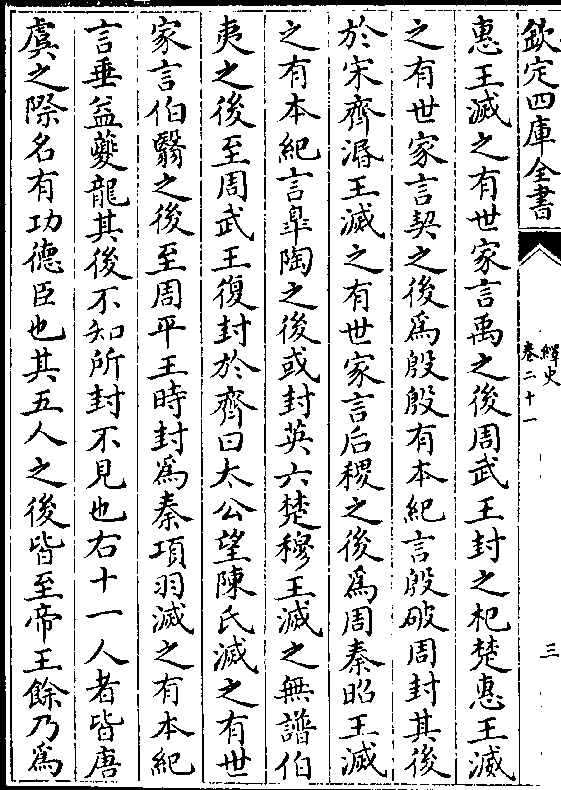 欽定四庫全書
繹史
卷二十一
三
惠王滅之有世家言禹之後周武王封之杞楚惠王滅
之有世家言契之後為殷殷有本紀言殷破周封其後
於宋齊湣王滅之有世家言后稷之後為周秦昭王滅
之有本紀言臯陶之後或封英六楚穆王滅之無譜伯
夷之後至周武王復封於齊曰太公望陳氏滅之有世
家言伯翳之後至周平王時封為秦項羽滅之有本紀
言垂益夔龍其後不知所封不見也右十一人者皆唐
虞之際名有功德臣也其五人之後皆至帝王餘乃為